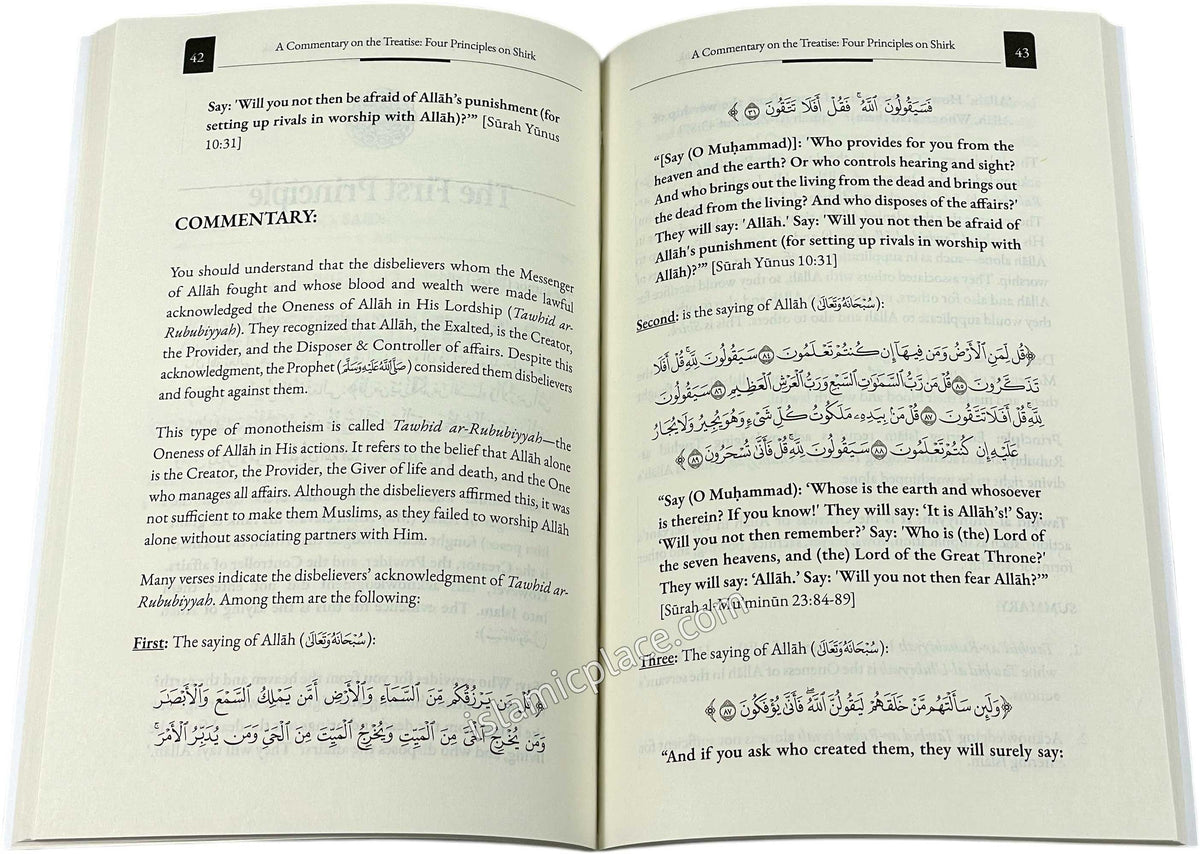 42
A Commentary on the Treatise: Four Principles on Shirk
Say: 'Will you not then be afraid of Allāh's punishment (for
setting up rivals in worship with Allāh)?'” [Sūrah Yūnus
10:31]
COMMENTARY:
You should understand that the disbelievers whom the Messenger
of Allāh fought and whose blood and wealth were made lawful
acknowledged the Oneness of Allāh in His Lordship (Tawhid ar-
Rububiyyah). They recognized that Allāh, the Exalted, is the Creator,
the Provider, and the Disposer & Controller of affairs. Despite this
acknowledgment, the Prophet (صَلَّى اللَّهُ عَلَيْهِ وَسَلَّمَ) considered them disbelievers
and fought against them.
This type of monotheism is called Tawhid ar-Rububiyyah—the
Oneness of Allāh in His actions. It refers to the belief that Allāh alone
is the Creator, the Provider, the Giver of life and death, and the One
who manages all affairs. Although the disbelievers affirmed this, it was
not sufficient to make them Muslims, as they failed to worship Allāh
alone without associating partners with Him.
Many verses indicate the disbelievers' acknowledgment of Tawhid ar-
Rububiyyah. Among them are the following:
First: The saying of Allāh (سُبْحَانَهُ وَتَعَالَى):
﴿قُلْ مَن يَرْزُقُكُم مِّنَ ٱلسَّمَآءِ وَٱلْأَرْضِ أَمَّن يَمْلِكُ ٱلسَّمْعَ وَٱلْأَبْصَٰرَ
وَمَن يُخْرِجُ ٱلْحَىَّ مِنَ ٱلْمَيِّتِ وَيُخْرِجُ ٱلْمَيِّتَ مِنَ ٱلْحَىِّ وَمَن يُدَبِّرُ ٱلْأَمْرَ ۚ
A Commentary on the Treatise: Four Principles on Shirk
43
فَسَيَقُولُونَ ٱللَّهُ ۚ فَقُلْ أَفَلَا تَتَّقُونَ ٣١﴾
“[Say (O Muḥammad)]: 'Who provides for you from the
heaven and the earth? Or who controls hearing and sight?
And who brings out the living from the dead and brings out
the dead from the living? And who disposes of the affairs?'
They will say: 'Allāh.' Say: 'Will you not then be afraid of
Allāh's punishment (for setting up rivals in worship with
Allāh)?'” [Sūrah Yūnus 10:31]
Second: is the saying of Allāh (سُبْحَانَهُ وَتَعَالَى):
﴿قُل لِّمَنِ ٱلْأَرْضُ وَمَن فِيهَآ إِن كُنتُمْ تَعْلَمُونَ ٨٤ سَيَقُولُونَ لِلَّهِ ۚ قُلْ أَفَلَا
تَذَكَّرُونَ ٨٥ قُلْ مَن رَّبُّ ٱلسَّمَٰوَٰتِ ٱلسَّبْعِ وَرَبُّ ٱلْعَرْشِ ٱلْعَظِيمِ ٨٦ سَيَقُولُونَ
لِلَّهِ ۚ قُلْ أَفَلَا تَتَّقُونَ ٨٧ قُلْ مَنۢ بِيَدِهِۦ مَلَكُوتُ كُلِّ شَىْءٍ وَهُوَ يُجِيرُ وَلَا يُجَارُ
عَلَيْهِ إِن كُنتُمْ تَعْلَمُونَ ٨٨ سَيَقُولُونَ لِلَّهِ ۚ قُلْ فَأَنَّىٰ تُسْحَرُونَ ٨٩﴾
“Say (O Muḥammad): ‘Whose is the earth and whosoever
is therein? If you know!' They will say: ‘It is Allāh's!' Say:
'Will you not then remember?' Say: 'Who is (the) Lord of
the seven heavens, and (the) Lord of the Great Throne?'
They will say: ‘Allāh.’ Say: 'Will you not then fear Allāh?'”
[Sūrah al-Mu'minūn 23:84-89]
Three: The saying of Allāh (سُبْحَانَهُ وَتَعَالَى):
﴿وَلَئِن سَأَلْتَهُم مَّنْ خَلَقَهُمْ لَيَقُولُنَّ ٱللَّهُ ۖ فَأَنَّىٰ يُؤْفَكُونَ ٨٧﴾
“And if you ask who created them, they will surely say:
islamicplace.com